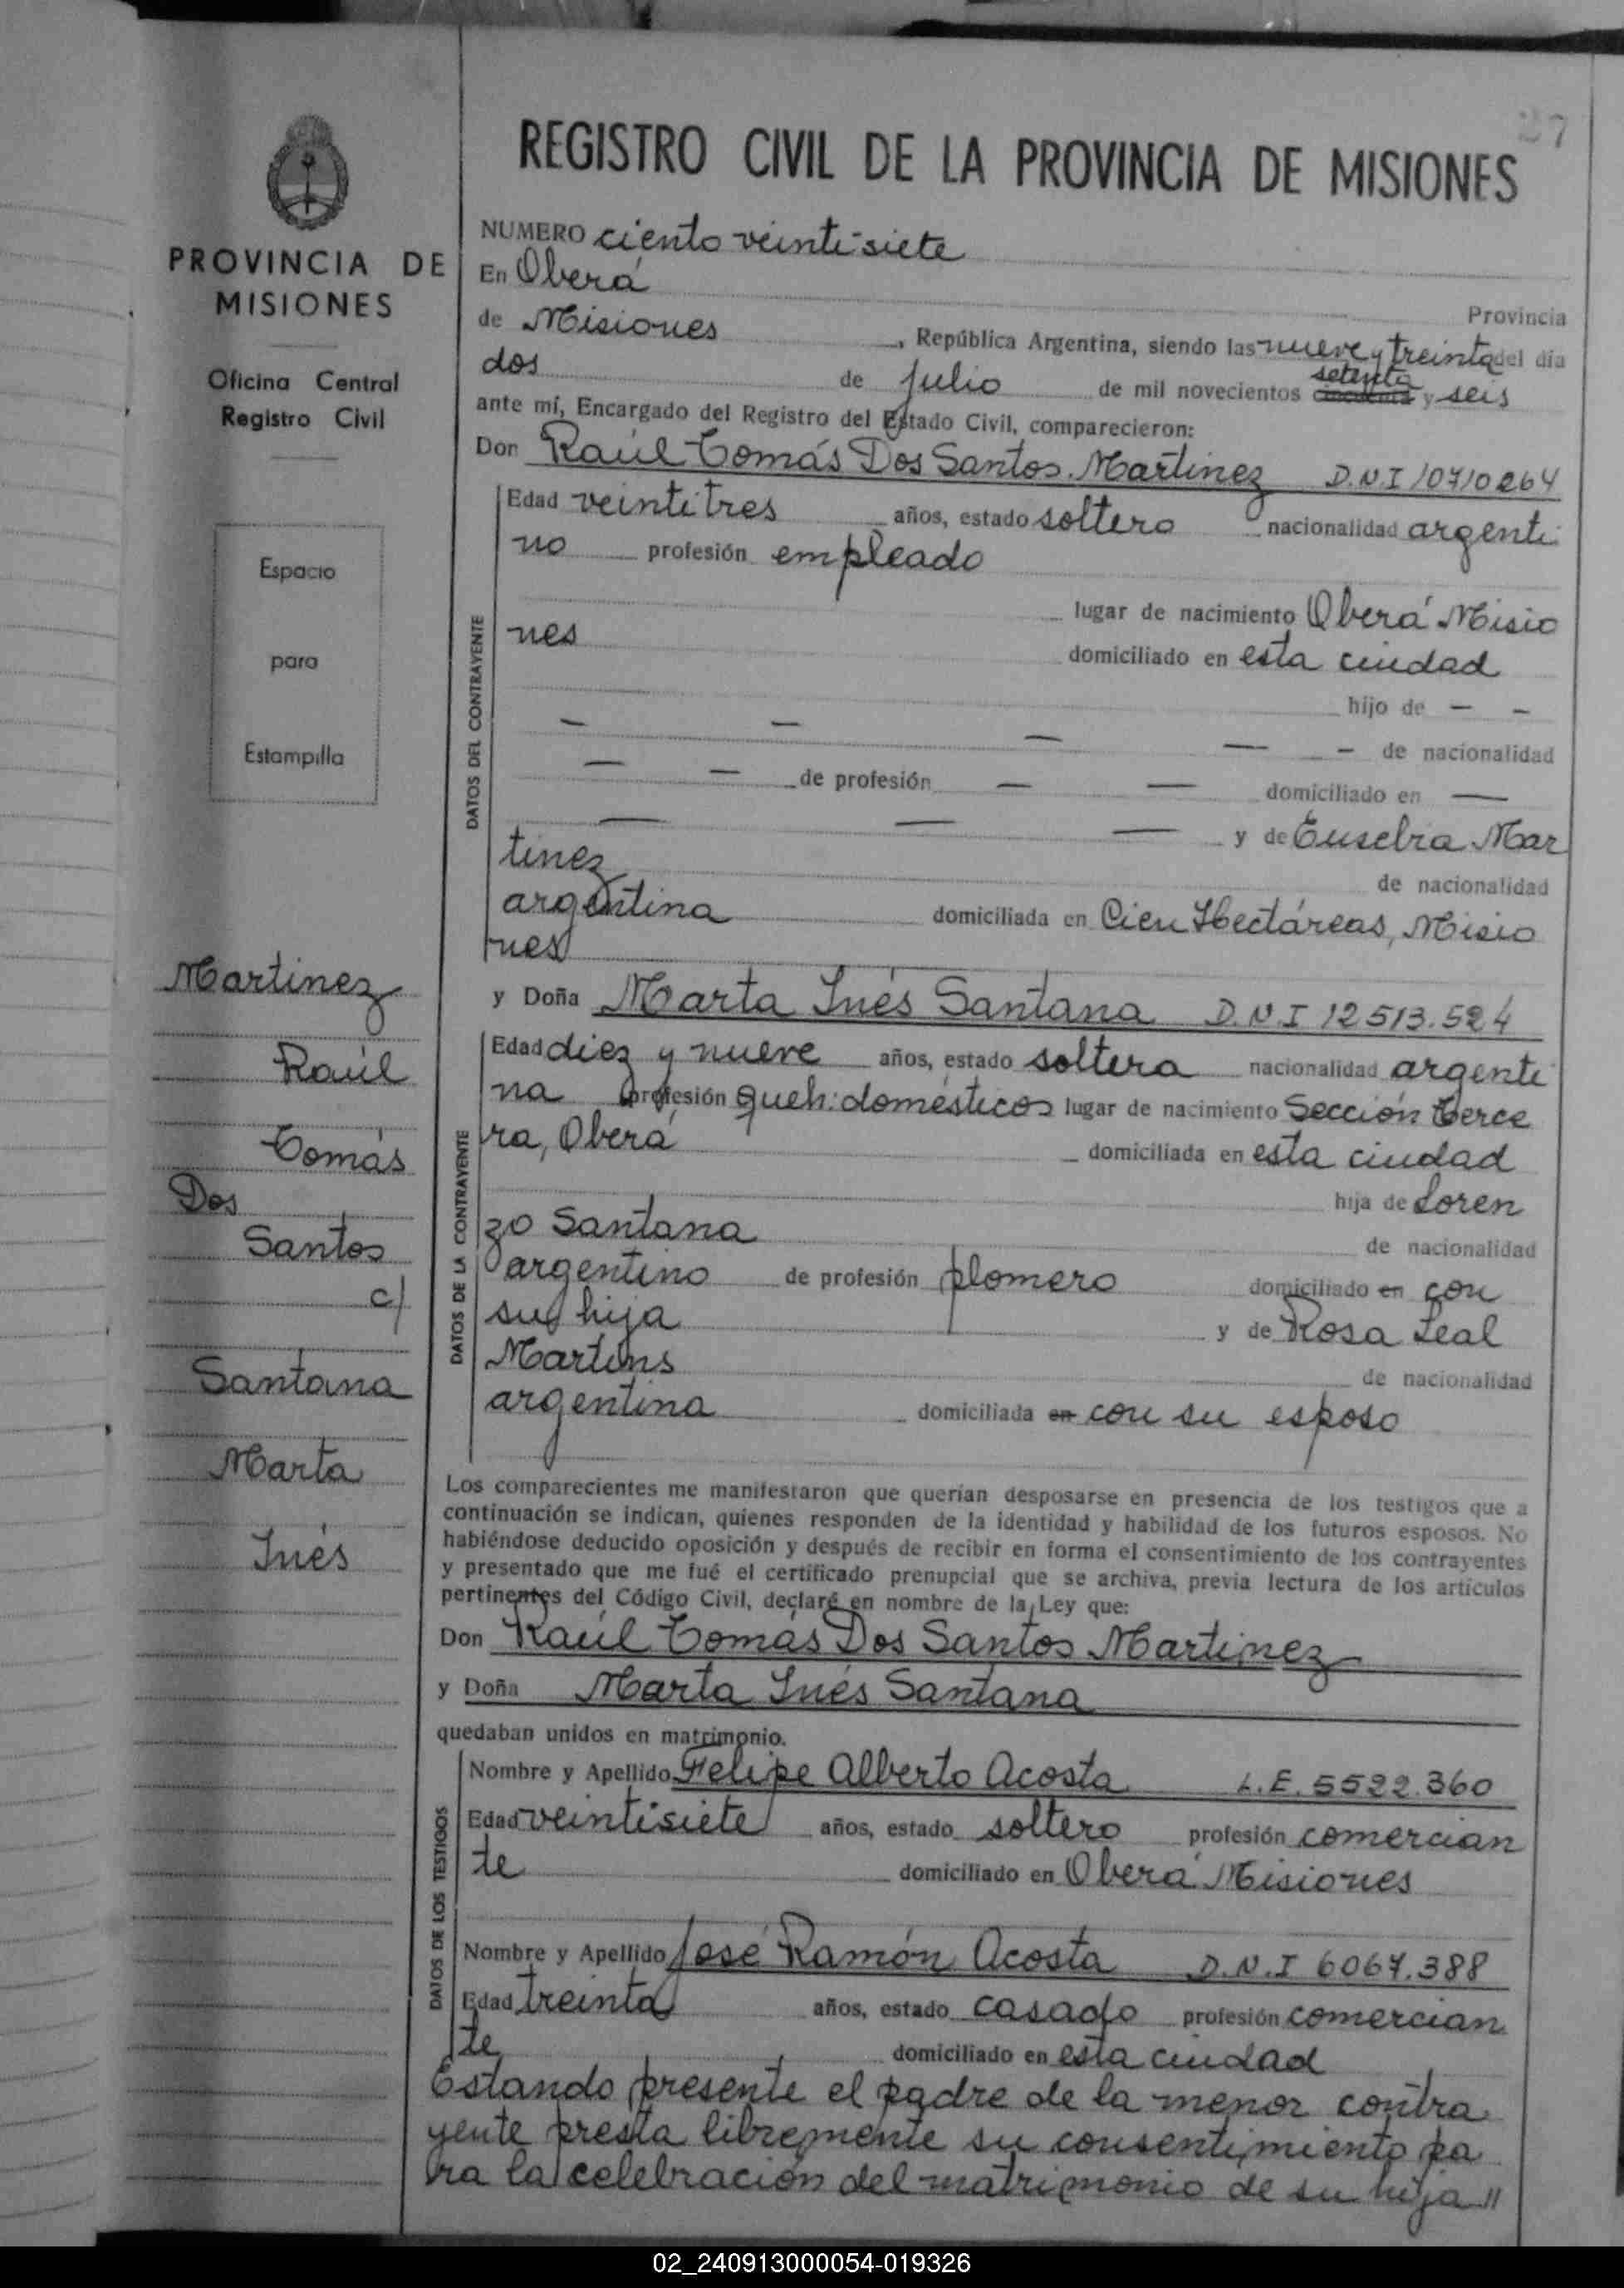 27
REGISTRO CIVIL DE LA PROVINCIA DE MISIONES
PROVINCIA DE
MISIONES
Oficina Central
Registro Civil
Espacio
para
Estampilla
Martinez
Raúl
Tomás
Dos
Santos
c/
Santana
Marta
Inés
NUMERO ciento veinti-siete
En Oberá
Provincia
de Misiones, República Argentina, siendo las nueve y treinta del día
dos de julio de mil novecientos setenta cincuenta y seis
ante mí, Encargado del Registro del Estado Civil, comparecieron:
Don Raúl Tomás Dos Santos Martinez D.N.I 10710264
DATOS DEL CONTRAYENTE
Edad veintitres años, estado soltero nacionalidad argenti
no profesión empleado
lugar de nacimiento Oberá Misio
nes domiciliado en esta ciudad
hijo de — —
— — — — — de nacionalidad
— — de profesión — — domiciliado en —
— — — y de Eusebia Mar
tinez de nacionalidad
argentina domiciliada en Cien Hectáreas, Misio
nes
y Doña Marta Inés Santana D.N.I 12513.524
DATOS DE LA CONTRAYENTE
Edad diez y nueve años, estado soltera nacionalidad argenti
na profesión queh: domésticos lugar de nacimiento Sección Terce
ra, Oberá domiciliada en esta ciudad
hija de Loren
zo Santana de nacionalidad
argentino de profesión plomero domiciliado en con
su hija y de Rosa Leal
Martins de nacionalidad
argentina domiciliada en con su esposo
Los comparecientes me manifestaron que querían desposarse en presencia de los testigos que a
continuación se indican, quienes responden de la identidad y habilidad de los futuros esposos. No
habiéndose deducido oposición y después de recibir en forma el consentimiento de los contrayentes
y presentado que me fué el certificado prenupcial que se archiva, previa lectura de los artículos
pertinentes del Código Civil, declaré en nombre de la Ley que:
Don Raúl Tomás Dos Santos Martinez
y Doña Marta Inés Santana
quedaban unidos en matrimonio.
DATOS DE LOS TESTIGOS
Nombre y Apellido Felipe Alberto Acosta L.E. 5522.360
Edad veintisiete años, estado soltero profesión comercian
te domiciliado en Oberá Misiones
Nombre y Apellido José Ramón Acosta D.N.I 6067.388
Edad treinta años, estado casado profesión comercian
te domiciliado en esta ciudad
Estando presente el padre de la menor contra
yente presta libremente su consentimiento pa
ra la celebración del matrimonio de su hija //
02_240913000054-019326